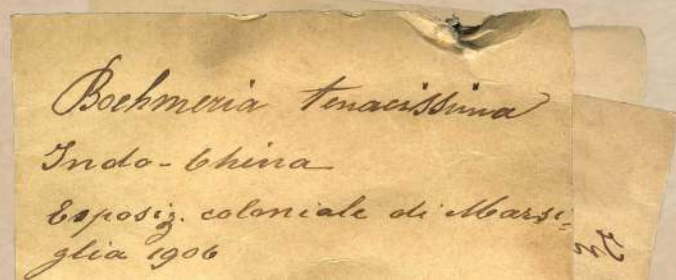 Boehmeria tenacissima
Indo-China
Esposiz. coloniale di Marsi-
glia 1906